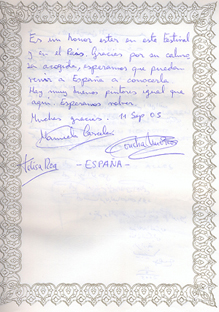 Es un honor estar en este Festival
y en el País. Gracias por su calurosa
acogida, esperamos que puedan
venir a España a conocerla
Hay muy buenos pintores igual que
aquí. Esperamos volver.
Muchas gracias. 11 Sep 05
Manuela
Concha
Felisa Rea
- ESPAÑA -